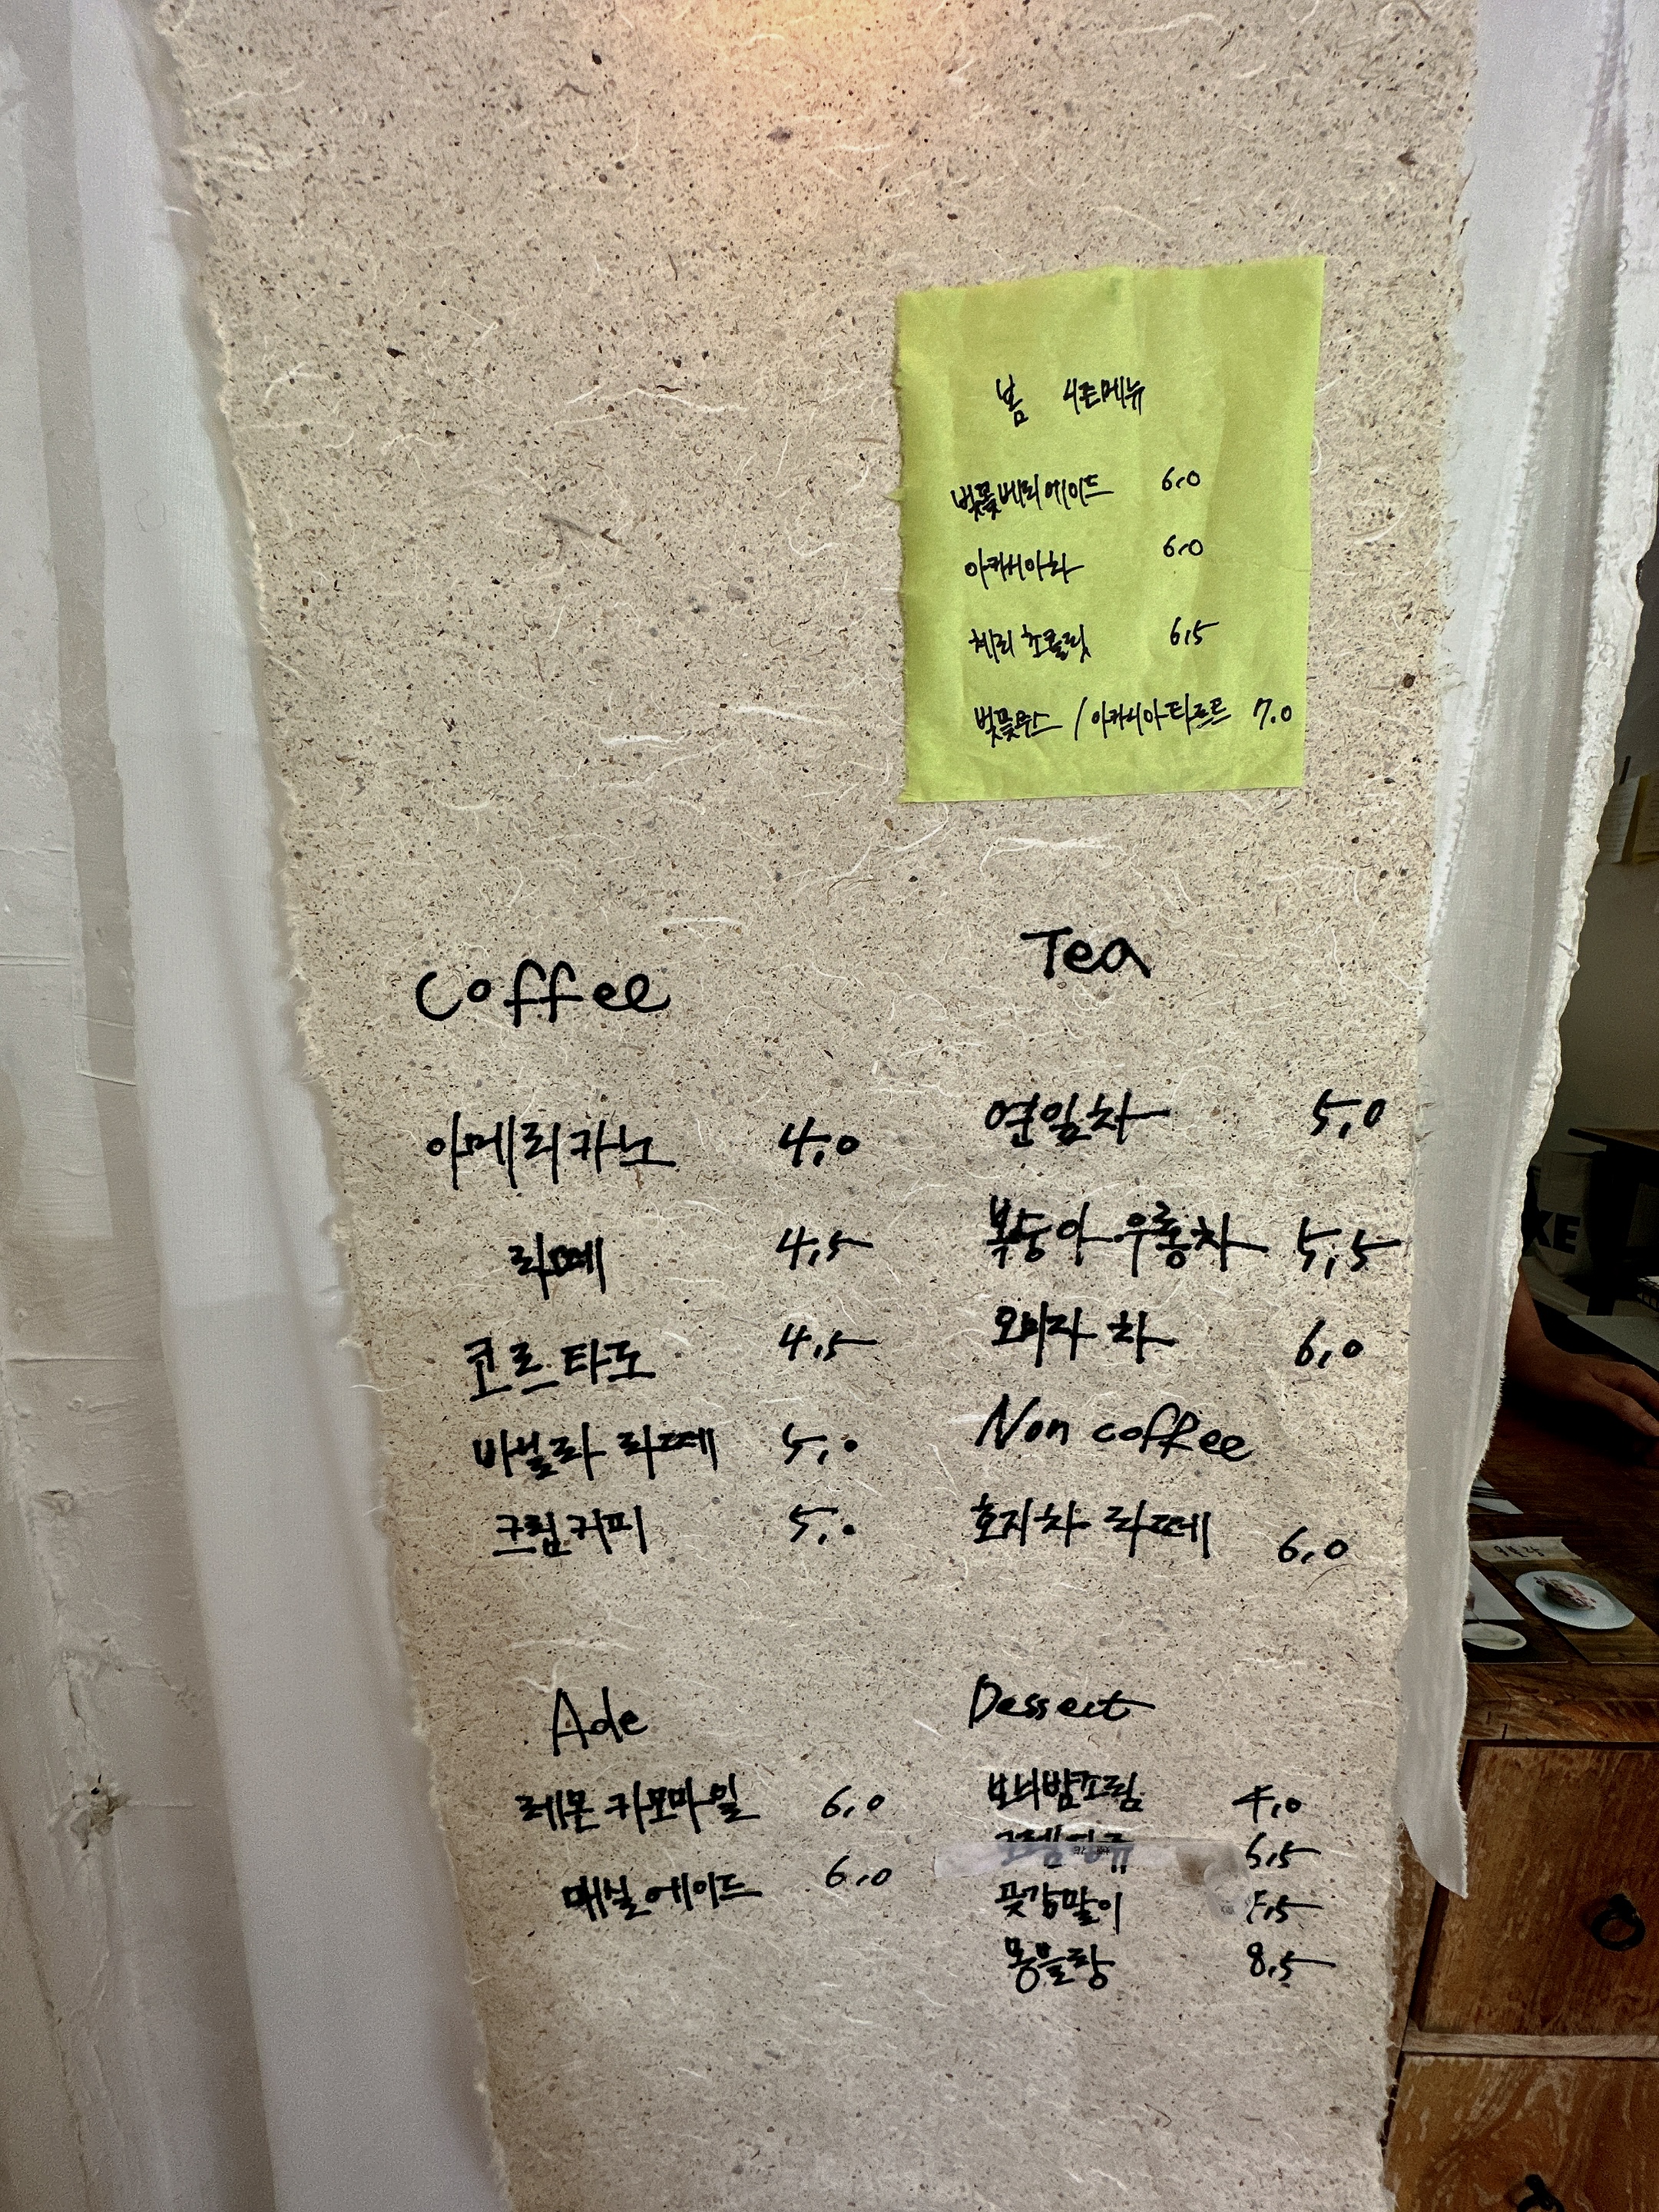 봄 시즌메뉴
벚꽃베리에이드 6.0
아카시아차 6.0
체리 초콜릿 6.5
벚꽃무스 / 아카시아타르트 7.0
Coffee
아메리카노 4.0
라떼 4.5
코르타도 4.5
바닐라 라떼 5.0
크림커피 5.0
Tea
연잎차 5.0
복숭아 우롱차 5.5
오미자 차 6.0
Non coffee
호지차 라떼 6.0
Ade
레몬 카모마일 6.0
매실에이드 6.0
Dessert
보늬밤조림 4.0
6.5
곶감말이 5.5
몽블랑 8.5